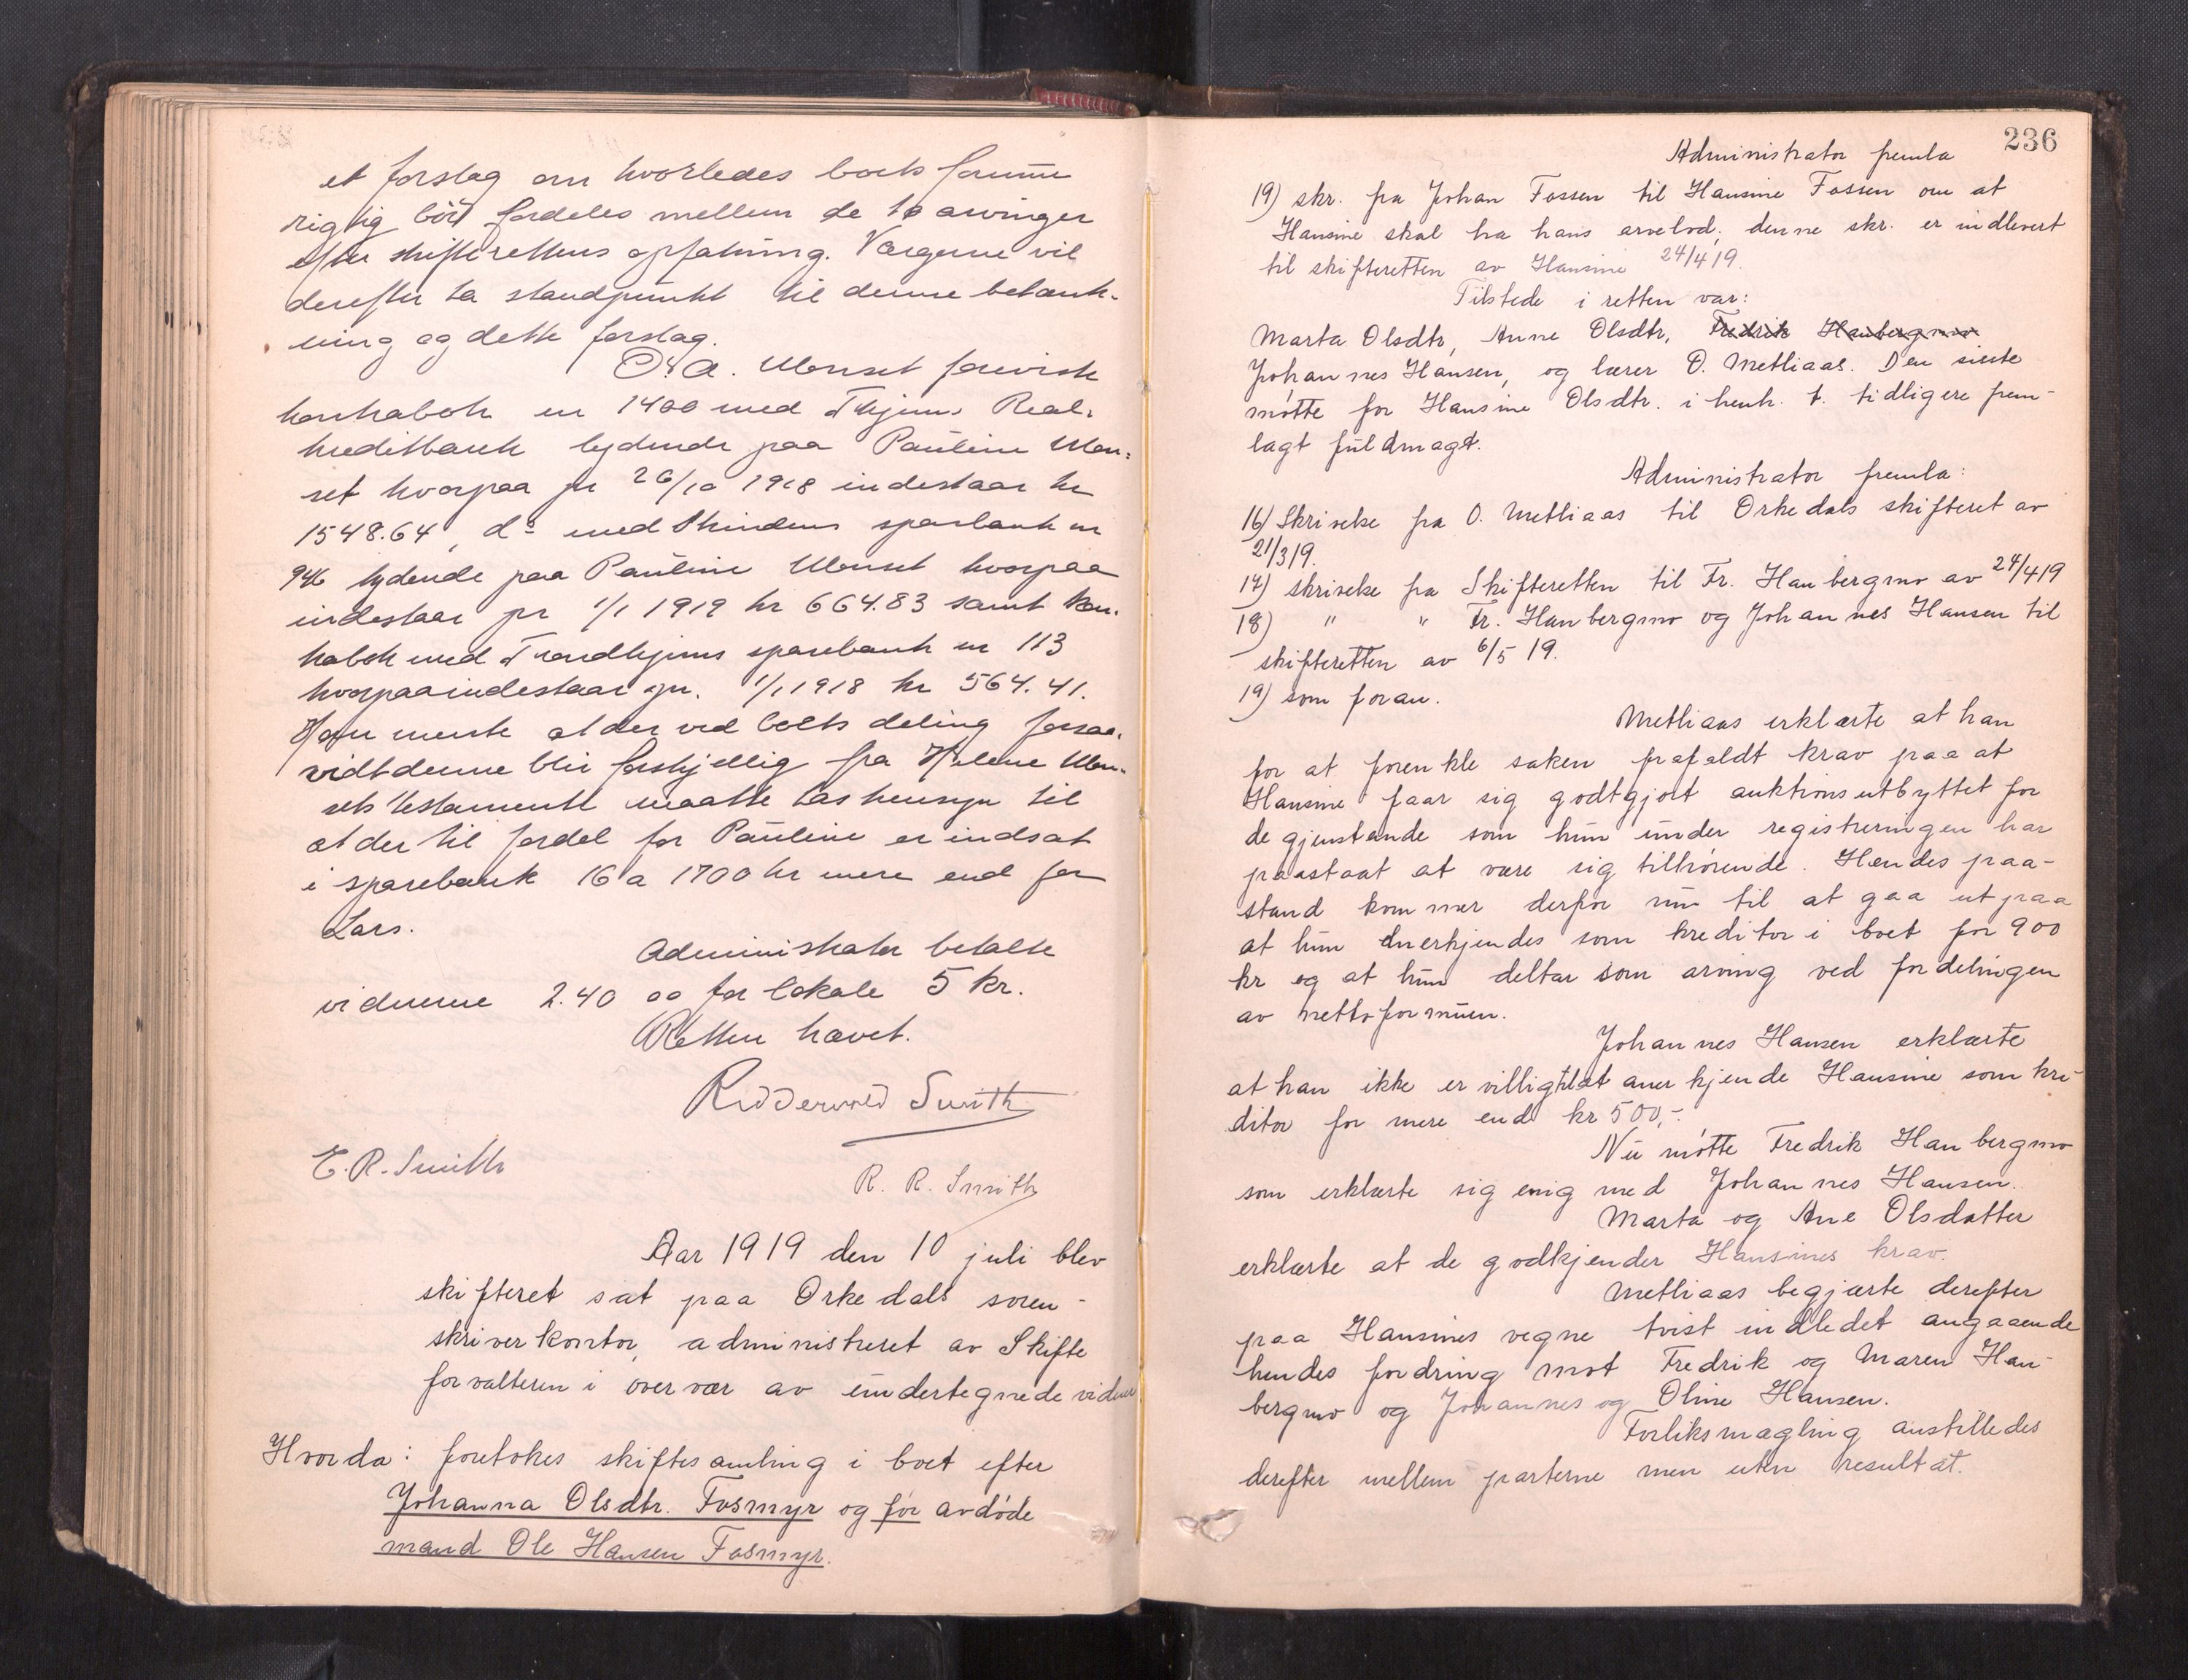 et forslag om hvorledes boets formue
rigtig bör fordeles mellem de to arvinger
efter skifterettens opfatning. Vergerne vil
derefter ta standpunkt til denne betænk-
ning og dette forslag.
O. A. Monset foreviste
kontrabok nr 1400 med Thjems Real-
kreditbank lydende paa Pauline Mon-
set hvorpaa pr 26/10 1918 indestaar kr
1548.64, do med Skindens sparebank nr
946 lydende paa Pauline Monset hvorpaa
indestaar pr 1/1 1919 kr 664.83 samt kon-
trabok med Trondhjems sparebank nr 113
hvorpaa indestaar pr. 1/1 1918 kr 564.41.
Han mente at der ved boets deling forsaa-
vidt denne blir forskjellig fra Helene Mon-
sets testamente maatte tas hensyn til
at der til fordel for Pauline er indsat
i sparebank 16 a 1700 kr mere end for
Lars.
Administrator betalte
vidnerne 2.40 og for lokale 5 kr.
Retten hævet.
Ridderwold Smith
E. R. Smith
R. R. Smith
Aar 1919 den 10 juli blev
skifteret sat paa Orkedals soren-
skriverkontor, administreret av Skifte
forvalteren i overvær av undertegnede vidner
Hvorda: foretokes skiftesamling i boet efter
Johanna Olsdtr. Fosmyr og før avdøde
mand Ole Hansen Fosmyr.
236
Administrator fremla
19) skr. fra Johan Fossen til Hansine Fossen om at
Hansine skal ha hans arvelod; denne skr. er indlevert
til skifteretten av Hansine 24/4 19.
Tilstede i retten var:
Marta Olsdtr, Anne Olsdtr, Fredrik Haubergmo
Johannes Hansen, og lærer O. Metliaas. Den siste
møtte for Hansine Olsdtr. i henh. t. tidligere frem-
lagt fuldmagt.
Administrator fremla:
16) Skrivelse fra O. Metliaas til Orkedals skifteret av
21/3 19.
17) skrivelse fra Skifteretten til Fr. Haubergmo av 24/4 19
18) " " Fr. Haubergmo og Johannes Hansen til
skifteretten av 6/5 19.
19) som foran.
Metliaas erklærte at han
for at forenkle saken frafaldt krav paa at
Hansine faar sig godtgjort auktionsutbyttet for
de gjenstande som hun under registreringen har
paastaat at være sig tilhørende. Hendes paa-
stand kommer derfor nu til at gaa ut paa
at hun anerkjendes som kreditor i boet for 900
kr og at hun deltar som arving ved fordelingen
av nettoformuen.
Johannes Hansen erklærte
at han ikke er villig til at anerkjende Hansine som kre-
ditor for mere end kr 500,-
Nu møtte Fredrik Haubergmo
som erklærte sig enig med Johannes Hansen.
Marta og Ane Olsdatter
erklærte at de godkjender Hansines krav.
Metliaas begjærte derefter
paa Hansines vegne tvist indledet angaaende
hendes fordring mot Fredrik og Maren Hau-
bergmo og Johannes og Oline Hansen.
Forliksmægling anstilledes
derefter mellem parterne men uten resultat.